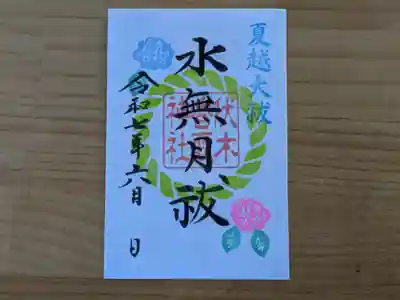 夏越大祓
水無月祓
伏木
神社
令和七年六月 日